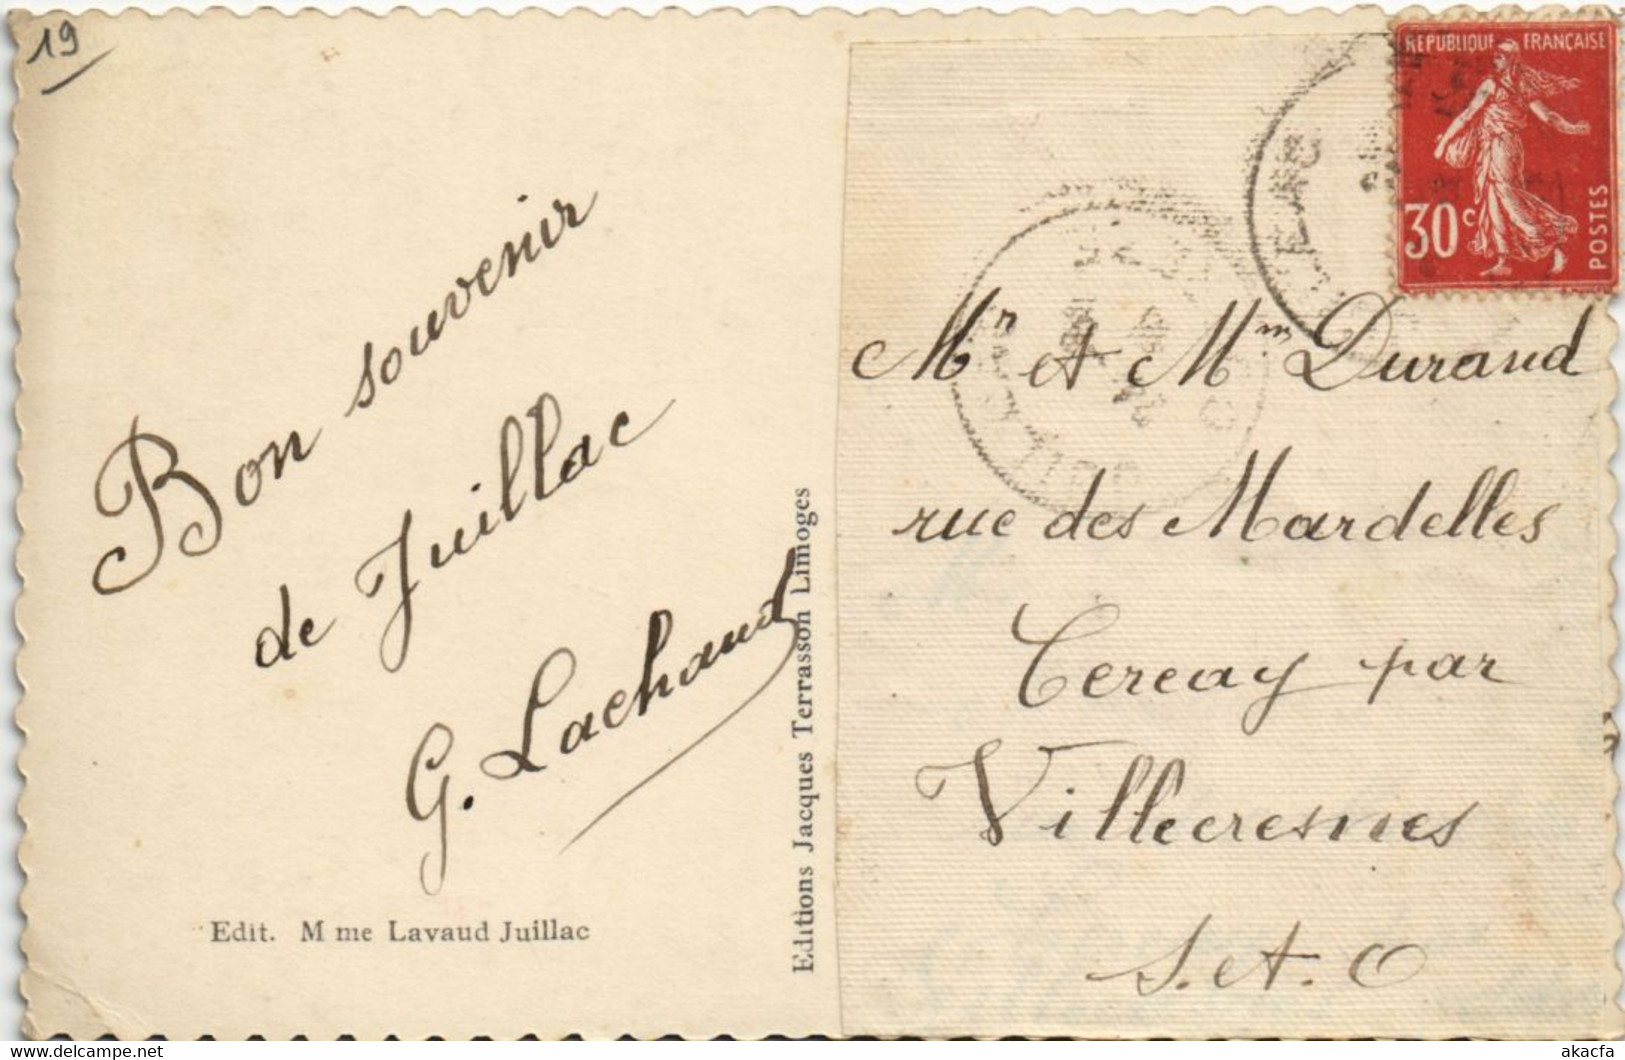 19
Bon souvenir
de Juillac
G. Lachaud
Edit. M me Lavaud Juillac
Editions Jacques Terrasson Limoges
REPUBLIQUE FRANÇAISE
30c
POSTES
JUILLAC
Mr et Mm Durand
rue des Mardelles
Cercay par
Villecresnes
S. et. O
akacfa